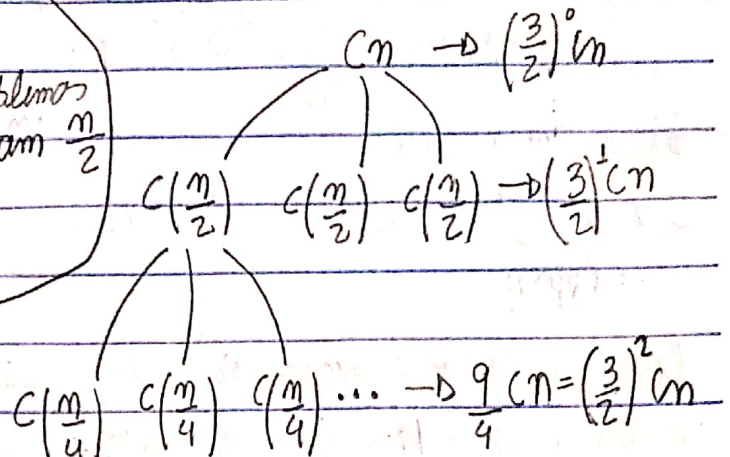 Cn → (3/2)^0 Cn
n/2
C(n/2) C(n/2) C(n/2) → (3/2)^1 Cn
C(n/4) C(n/4) C(n/4) ... → 9/4 Cn = (3/2)^2 Cn